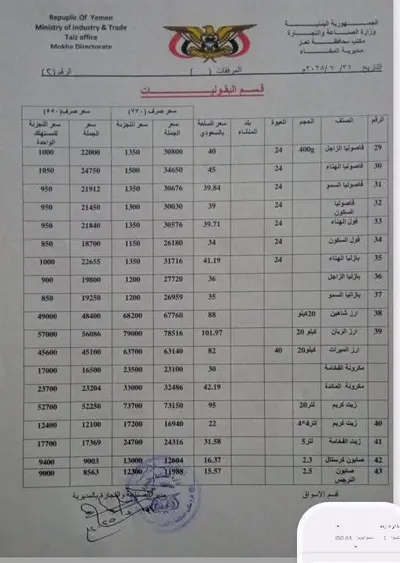 Republic OF Yemen
Ministry of Industry & Trade
Taiz office
Mokha Directorate
الجمهورية اليمنية
وزارة الصناعة والتجارة
مكتب محافظة تعز
مديرية المخاء
المرفقات ( )
قسم البقوليات
الرقم الصنف الحجم العبوة بلد المنشاء سعر السلعة بالسعودي سعر صرف (770) سعر صرف (550)
سعر الجملة سعر التجزئة سعر الجملة سعر التجزئة للمستهلك الواحدة
29 فاصوليا الزاجل 400g 24 40 30800 1350 22000 1000
30 فاصوليا الهناء 24 45 34650 1500 24750 1050
31 فاصوليا السمو 24 39.84 30676 1350 21912 950
32 فاصوليا السكون 24 39 30030 1300 21450 950
33 فول الهناء 24 39.71 30576 1350 21840 950
34 فول السكون 24 34 26180 1150 18700 850
35 بازليا الهناء 24 41.19 31716 1350 22655 1000
36 بازليا الزاجل 36 27720 1200 19800 900
37 بازاليا السمو 35 26959 1200 19250 850
38 ارز شاهين 20كيلو 88 67760 68200 48400 49000
39 ارز الريان كيلو 20 101.97 78516 79000 56086 57000
ارز الميراث كيلو20 40 82 63140 63700 45100 45600
مكرونة الفخامة 30 23100 23500 16500 17000
مكرونة المائدة 42.19 32486 33000 23204 23700
زيت كريم لتر20 95 73150 73770 52250 52700
40 زيت كريم لتر4*4 22 16940 17200 12100 12400
41 زيت الفخامة لتر5 31.58 24316 24700 17369 17700
42 صابون كرستال 2.3 16.37 12604 13000 9003 9400
43 صابون النرجس 2.5 15.57 11988 12300 8563 9000
قسم الاسواق